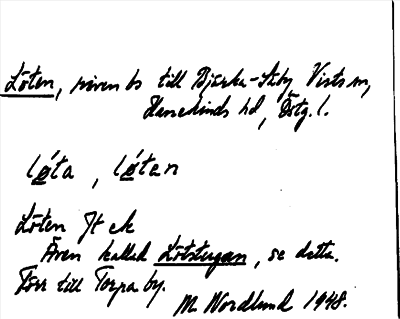 Löten, riven bs till Bjärka-Säby Vists sn,
Hanekinds hd, Östg. l.
løta, løten
Löten Jt ek
Även kallad Lötstugan, se detta.
Förr till Torpa by.
M. Nordlund 1948.